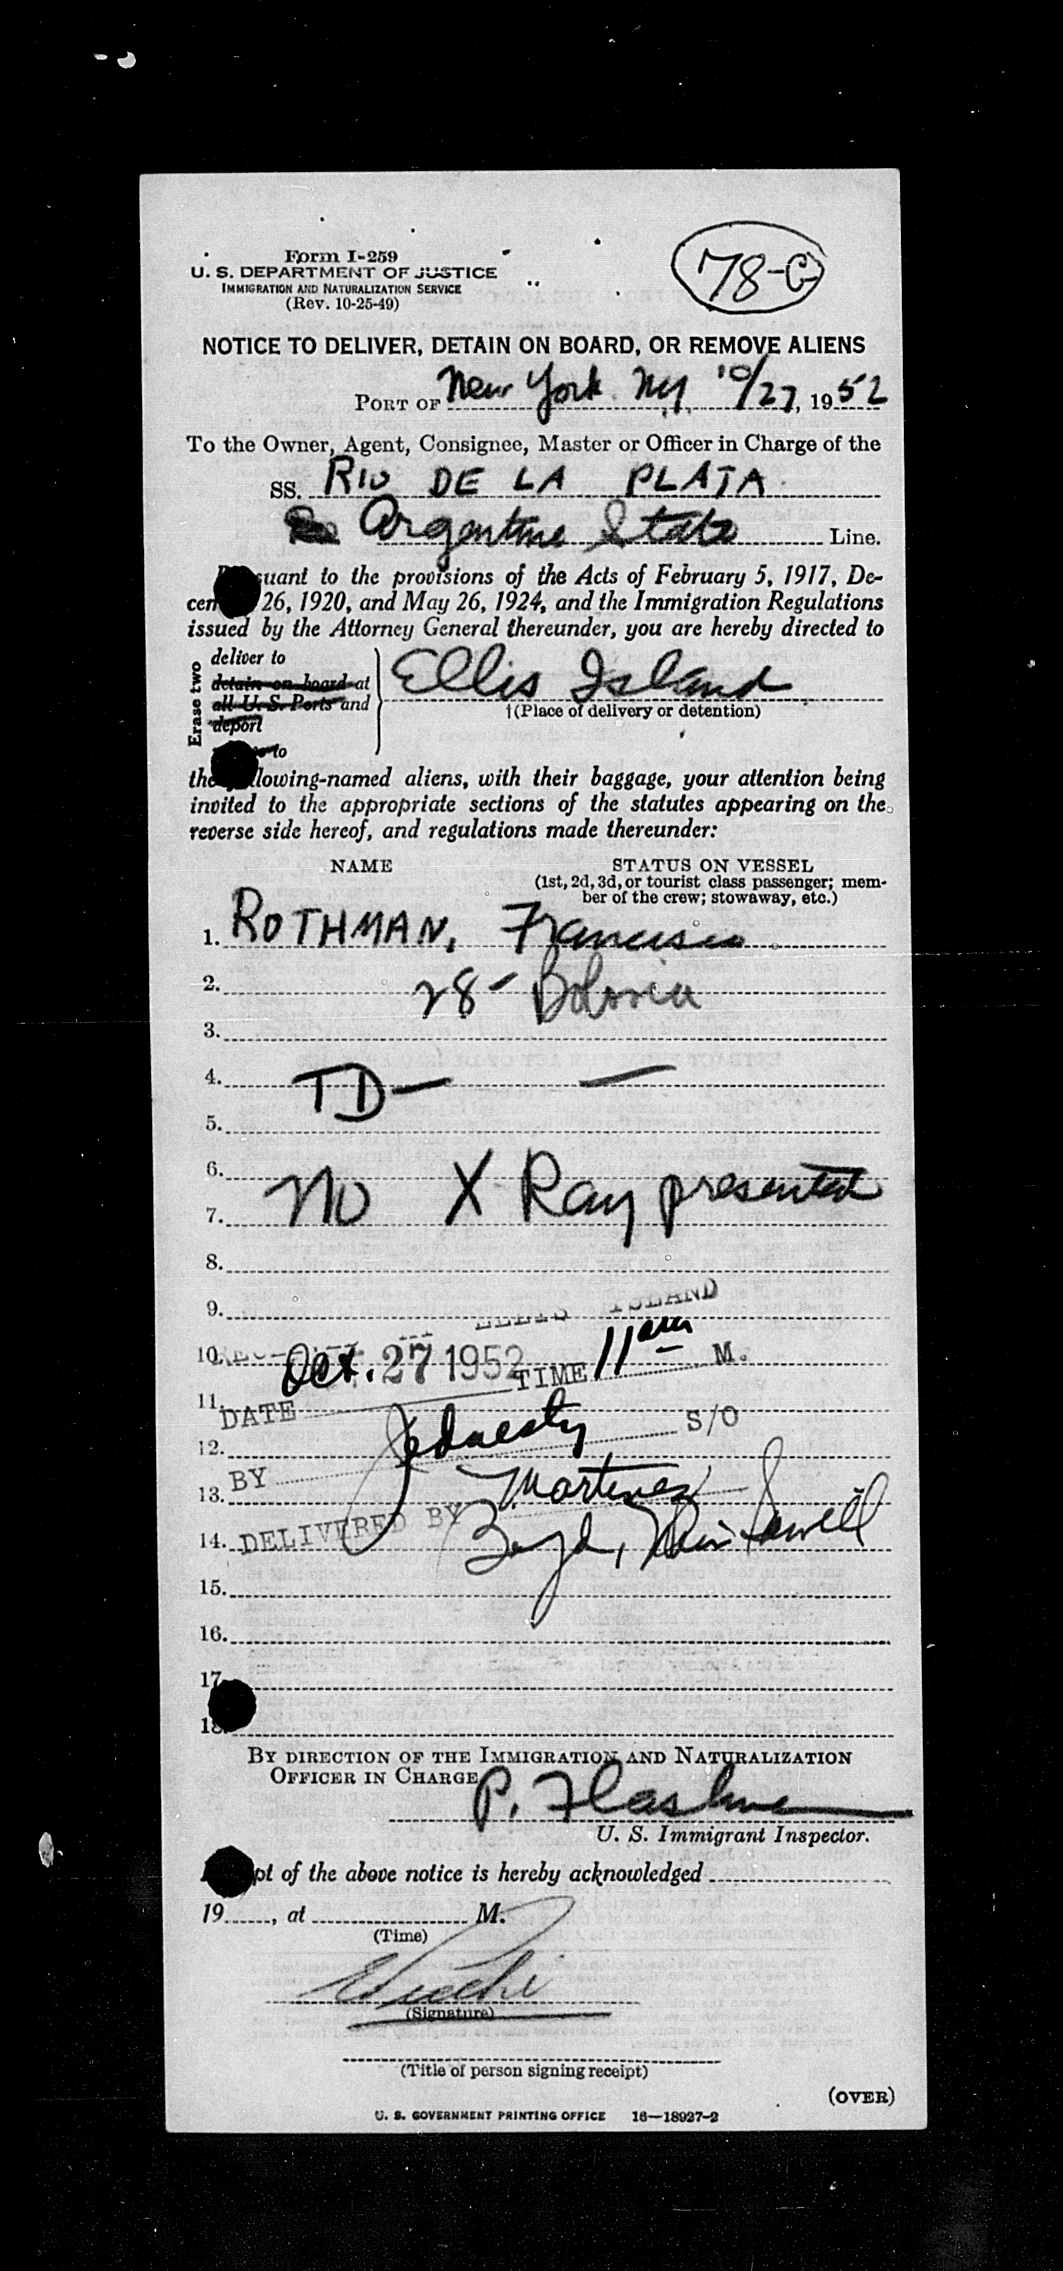 78-G
Form I-259
U. S. DEPARTMENT OF JUSTICE
IMMIGRATION AND NATURALIZATION SERVICE
(Rev. 10-25-49)
NOTICE TO DELIVER, DETAIN ON BOARD, OR REMOVE ALIENS
PORT OF New York NY 10/27, 1952
To the Owner, Agent, Consignee, Master or Officer in Charge of the
SS. RIO DE LA PLATA
Argentine State Line.
uant to the provisions of the Acts of February 5, 1917, De-
cem 26, 1920, and May 26, 1924, and the Immigration Regulations
issued by the Attorney General thereunder, you are hereby directed to
Erase two
deliver to
detain on board at
all U. S. Ports and
deport
to
Ellis Island
†(Place of delivery or detention)
the llowing-named aliens, with their baggage, your attention being
invited to the appropriate sections of the statutes appearing on the
reverse side hereof, and regulations made thereunder:
NAME STATUS ON VESSEL
(1st, 2d, 3d, or tourist class passenger; mem-
ber of the crew; stowaway, etc.)
1. ROTHMAN, Francisco
2. 28 - Bolivia
3.
4. TD —  —
5.
6.
7. No X Ray presented
8.
9. ELLIS ISLAND
10. Oct. 27 1952 TIME 11 am M.
11. DATE
12. S/O
BY
13. Martinez
14. DELIVERED BY Boyd,
15.
16.
17.
18.
BY DIRECTION OF THE IMMIGRATION AND NATURALIZATION
OFFICER IN CHARGE
P.
U. S. Immigrant Inspector.
pt of the above notice is hereby acknowledged
19, at M.
(Time)
(Signature)
(Title of person signing receipt)
(OVER)
U. S. GOVERNMENT PRINTING OFFICE 16—18927-2